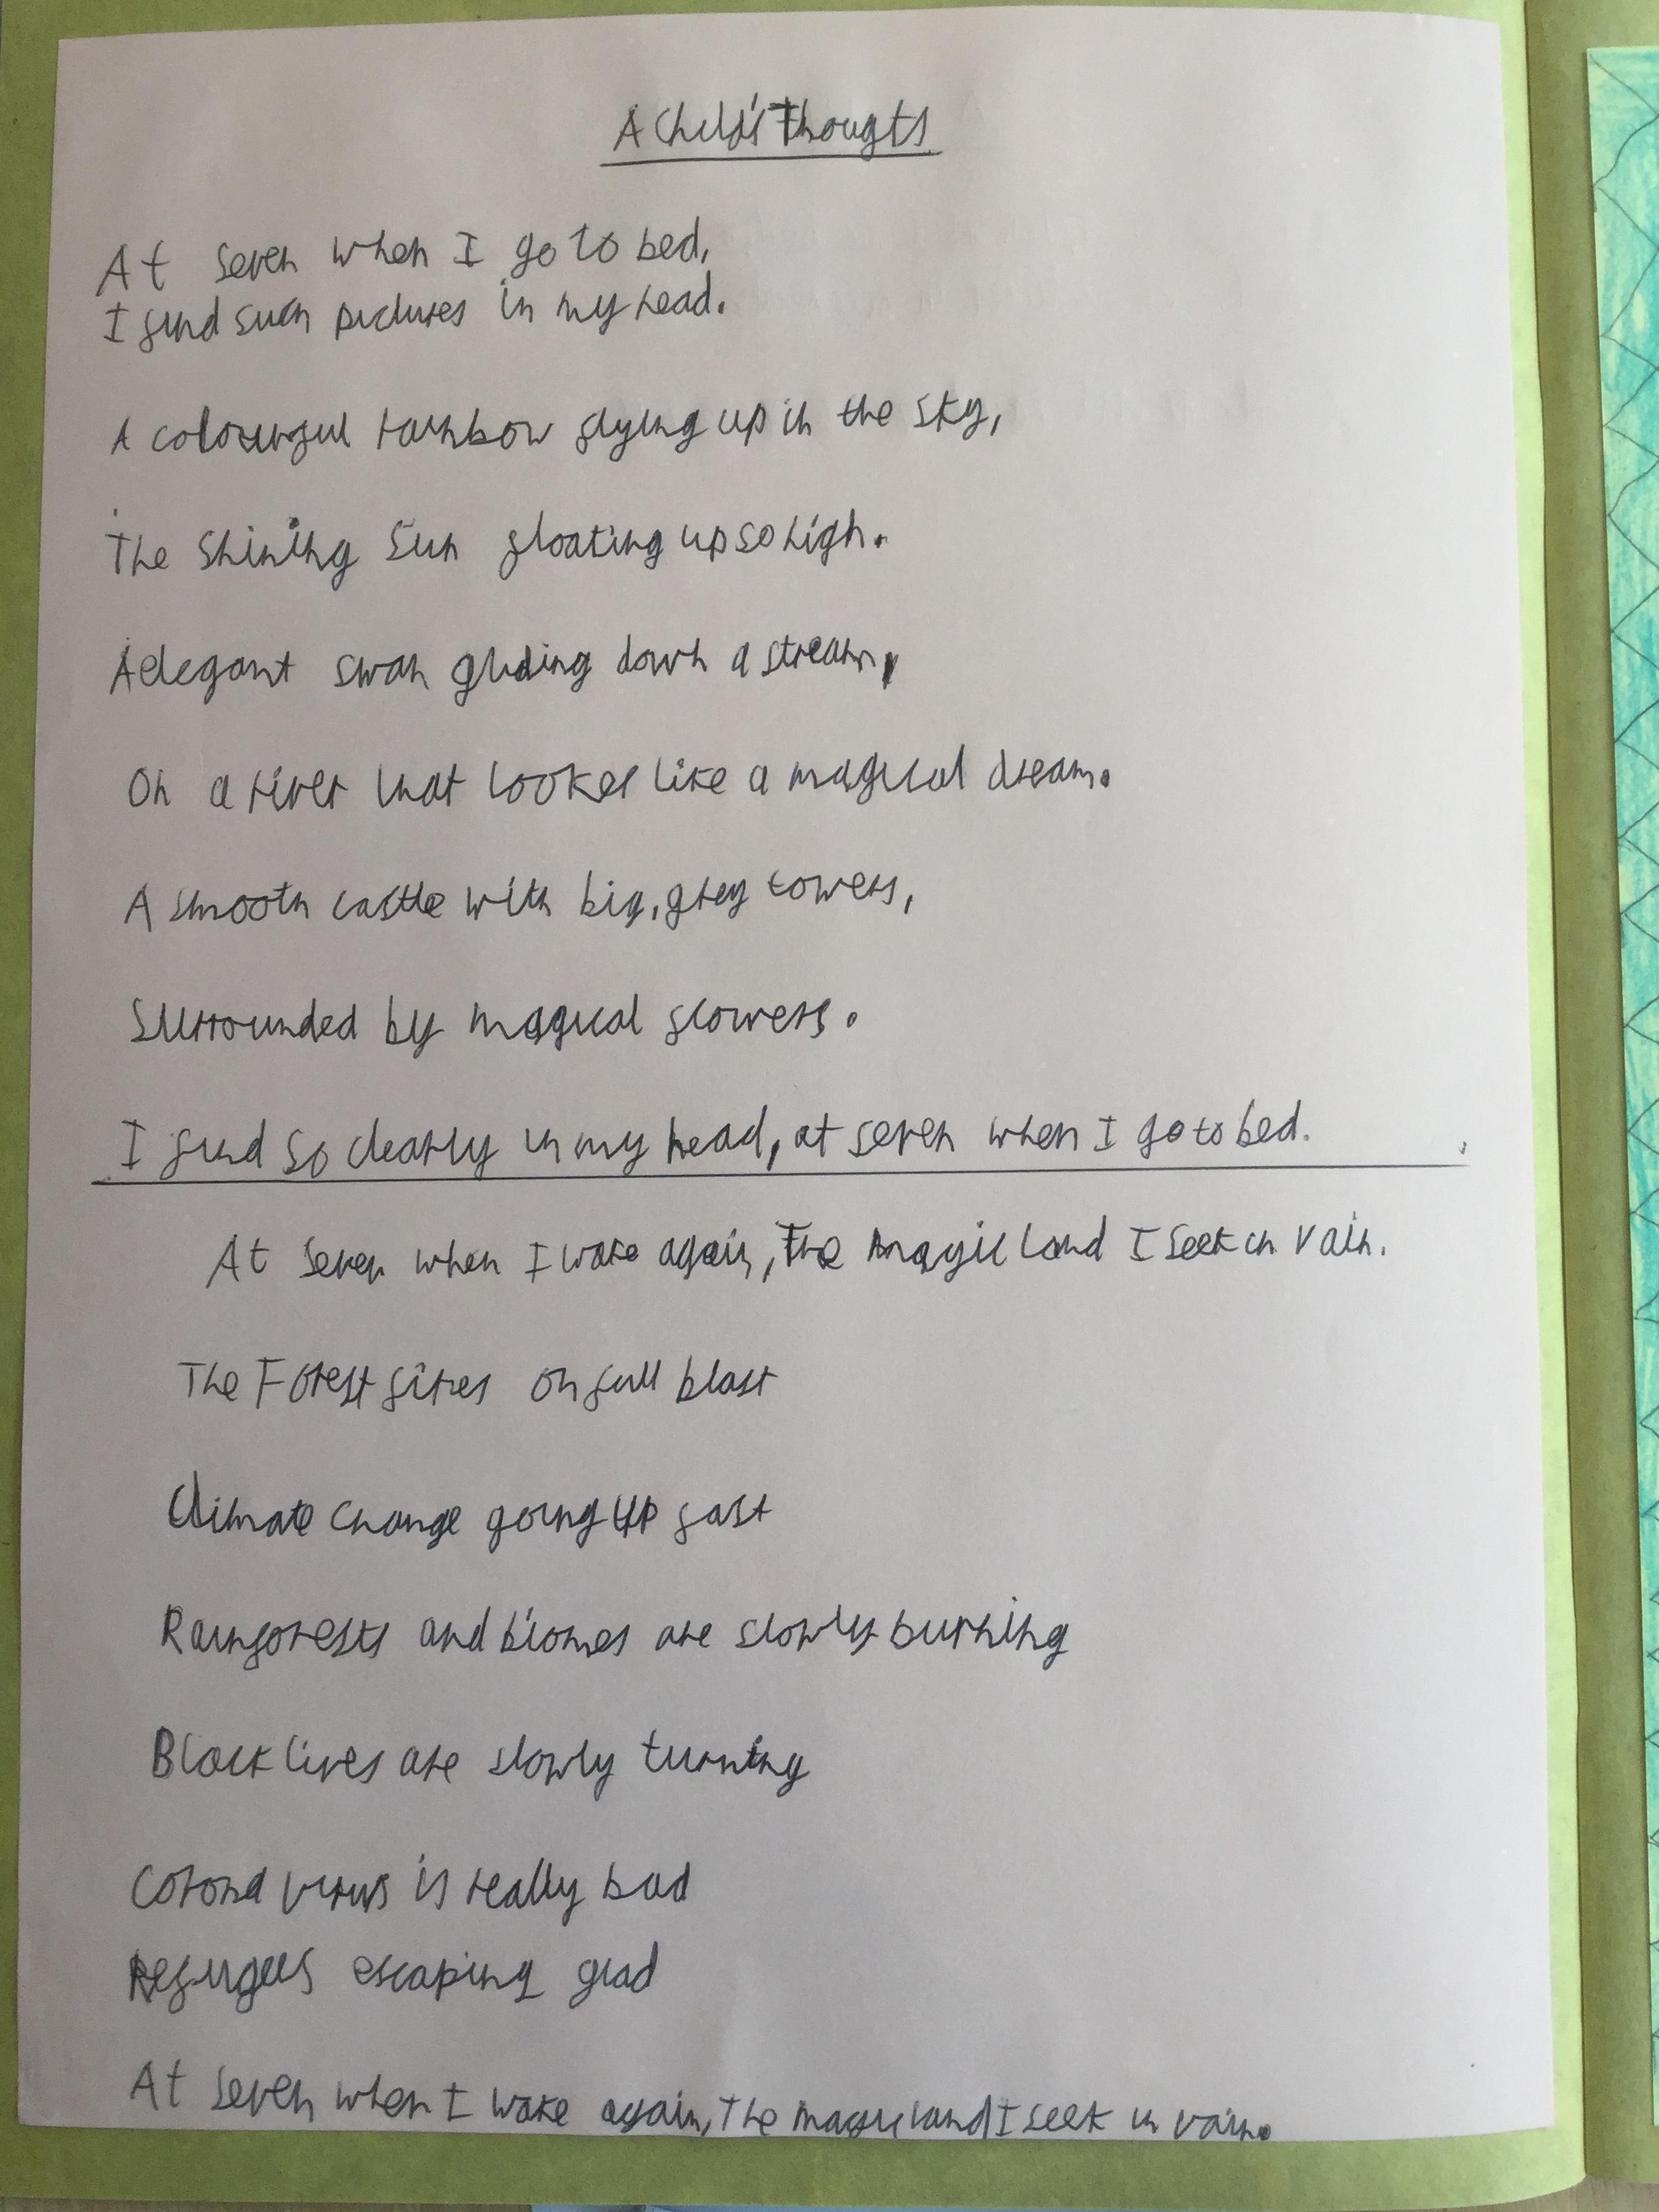 A Child's Thougts
At seven when I go to bed,
I find such pictures in my head.
A colourful rainbow flying up in the sky,
The Shining Sun floating up so high.
A elegant swan gliding down a stream,
On a river that looked like a magical dream.
A smooth castle with big, grey towers,
Surrounded by magical flowers.
I find so clearly in my head, at seven when I go to bed.
At seven when I wake again, The magic land I seek in vain.
The Forest fires on full blast
Climate change going up fast
Rainforests and biomes are slowly burning
Black lives are slowly turning
Corona virus is really bad
Refugees escaping glad
At seven when I wake again, The magic land I seek in vain.